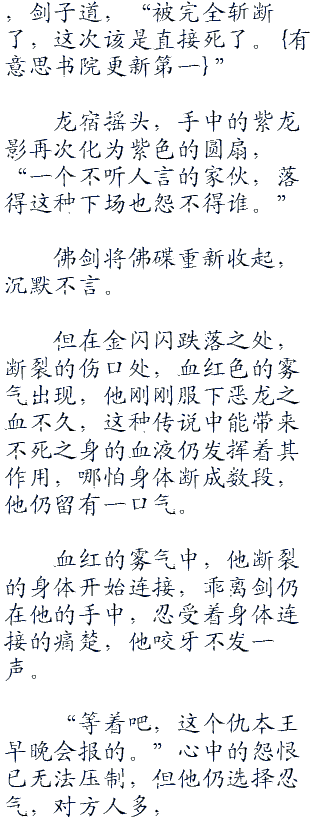 ，剑子道，“被完全斩断
了，这次该是直接死了。{有
意思书院更新第一}”
龙宿摇头，手中的紫龙
影再次化为紫色的圆扇，
“一个不听人言的家伙，落
得这种下场也怨不得谁。”
佛剑将佛碟重新收起，
沉默不言。
但在金闪闪跌落之处，
断裂的伤口处，血红色的雾
气出现，他刚刚服下恶龙之
血不久，这种传说中能带来
不死之身的血液仍发挥着其
作用，哪怕身体断成数段，
他仍留有一口气。
血红的雾气中，他断裂
的身体开始连接，乖离剑仍
在他的手中，忍受着身体连
接的痛楚，他咬牙不发一
声。
“等着吧，这个仇本王
早晚会报的。”心中的怨恨
已无法压制，但他仍选择忍
气，对方人多，